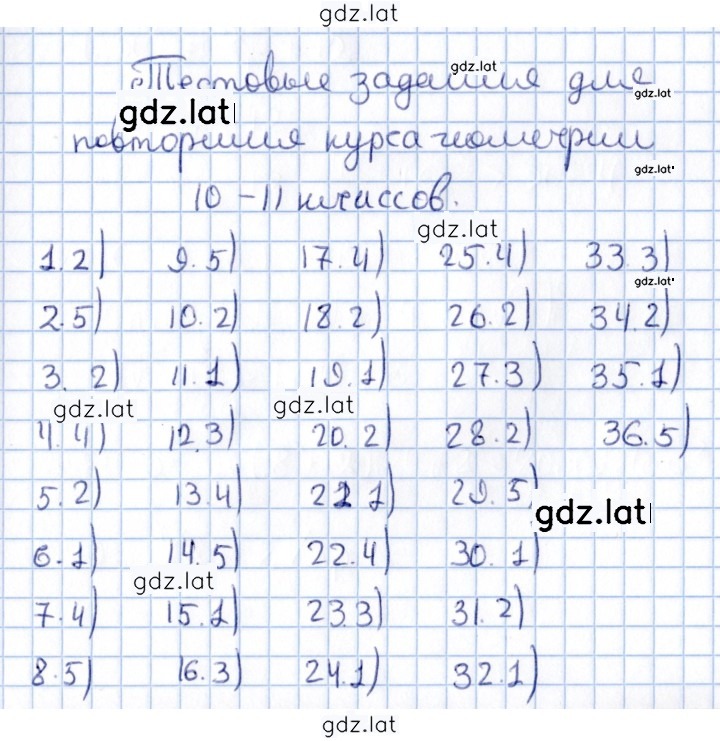 gdz.lat
Тестовые задания для
gdz.lat
gdz.lat
gdz.lat
повторения курса геометрии
gdz.lat
10 – 11 классов.
gdz.lat
1. 2) 9. 5) 17. 4) 25. 4) 33. 3)
gdz.lat
2. 5) 10. 2) 18. 2) 26. 2) 34. 2)
3. 2) 11. 1) 19. 1) 27. 3) 35. 1)
gdz.lat gdz.lat
4. 4) 12. 3) 20. 2) 28. 2) 36. 5)
5. 2) 13. 4) 21. 1) 29. 5)
gdz.lat
6. 1) 14. 5) 22. 4) 30. 1)
gdz.lat
7. 4) 15. 1) 23. 3) 31. 2)
8. 5) 16. 3) 24. 1) 32. 1)
gdz.lat